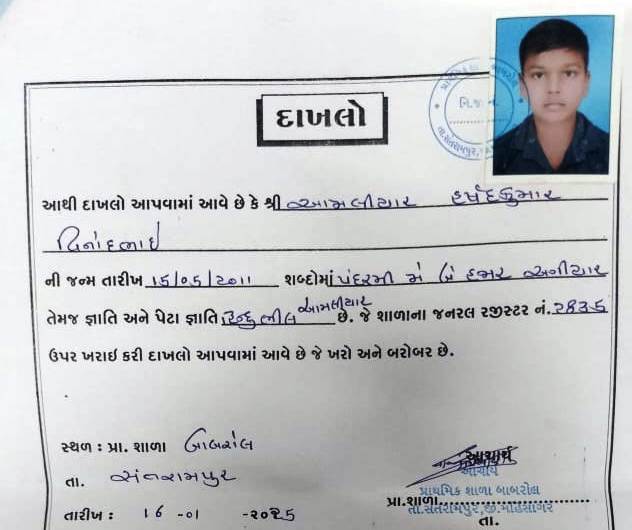 દાખલો
આથી દાખલો આપવામાં આવે છે કે શ્રી આમલીયાર હર્ષદકુમાર
વિનોદભાઇ
ની જન્મ તારીખ ૧૫/૦૫/૨૦૧૧ શબ્દોમાં પંદરમી મે બે હજાર અગીયાર
તેમજ જ્ઞાતિ અને પેટા જ્ઞાતિ હિન્દુ ભીલ આમલીયાર છે. જે શાળાના જનરલ રજીસ્ટર નં. ૨૪૩૬
ઉપર ખરાઈ કરી દાખલો આપવામાં આવે છે જે ખરો અને બરોબર છે.
સ્થળ : પ્રા. શાળા બાબરોલ
તા. સંતરામપુર
તારીખ : 16 -01 -૨૦૨5
આચાર્ય
આચાર્ય
પ્રાથમિક શાળા બાબરોલ
પ્રા.શાળા
તા.સંતરામપુર,જી.મહીસાગર
તા.